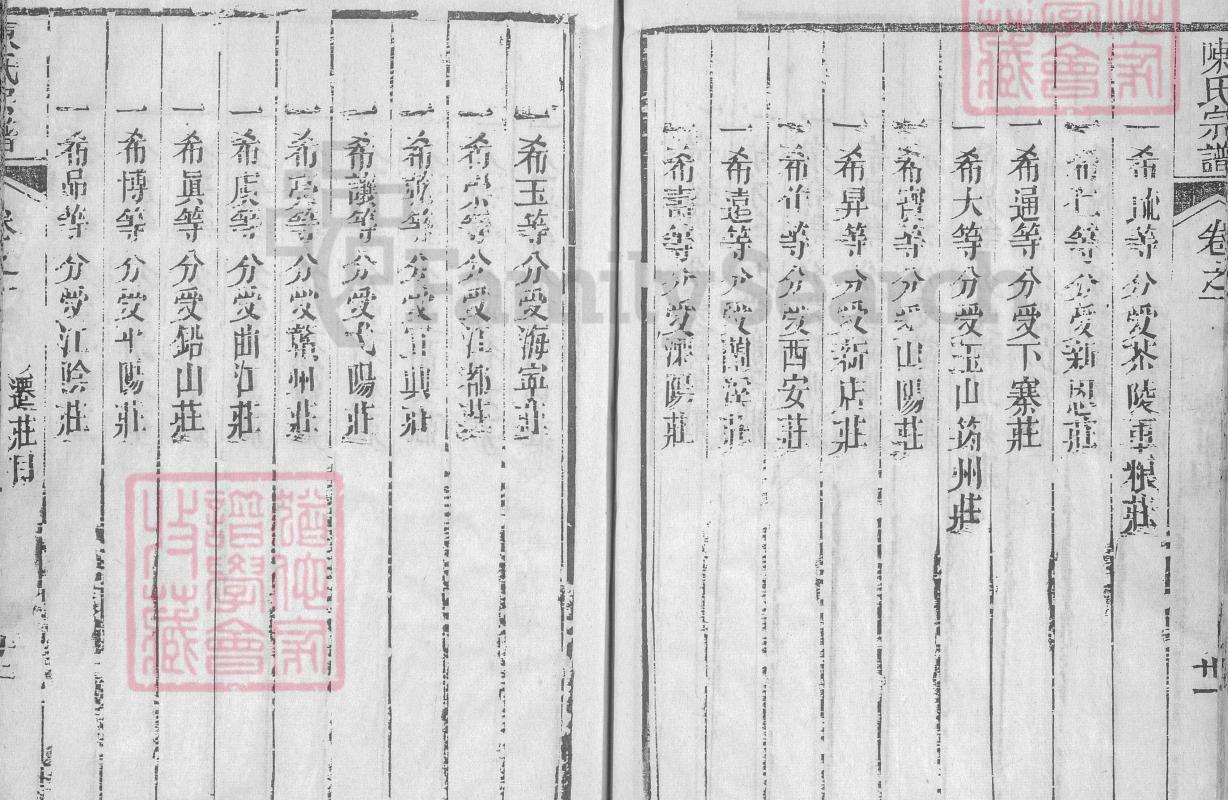 陳氏宗譜
卷之一
廿一
一希䟽等分受茶陵車粮莊
一希 等分受新恩莊
一希通等分受下寨莊
一希大等分受玉山筠州莊
一希寶等分受山陽莊
一希昇等分受新店莊
一希 等分受西安莊
一希遠等分受 莊
一希壽等分受溧陽莊
一希玉等分受海寧莊
一希 等分受江都莊
一希 等分受 莊
一希讓等分受弋陽莊
一希 等分受 州莊
一希虞等分受曲江莊
一希眞等分受鉛山莊
一希博等分受平陽莊
一希品等分受江陰莊
遷莊目
FamilySearch
譜學會
收藏